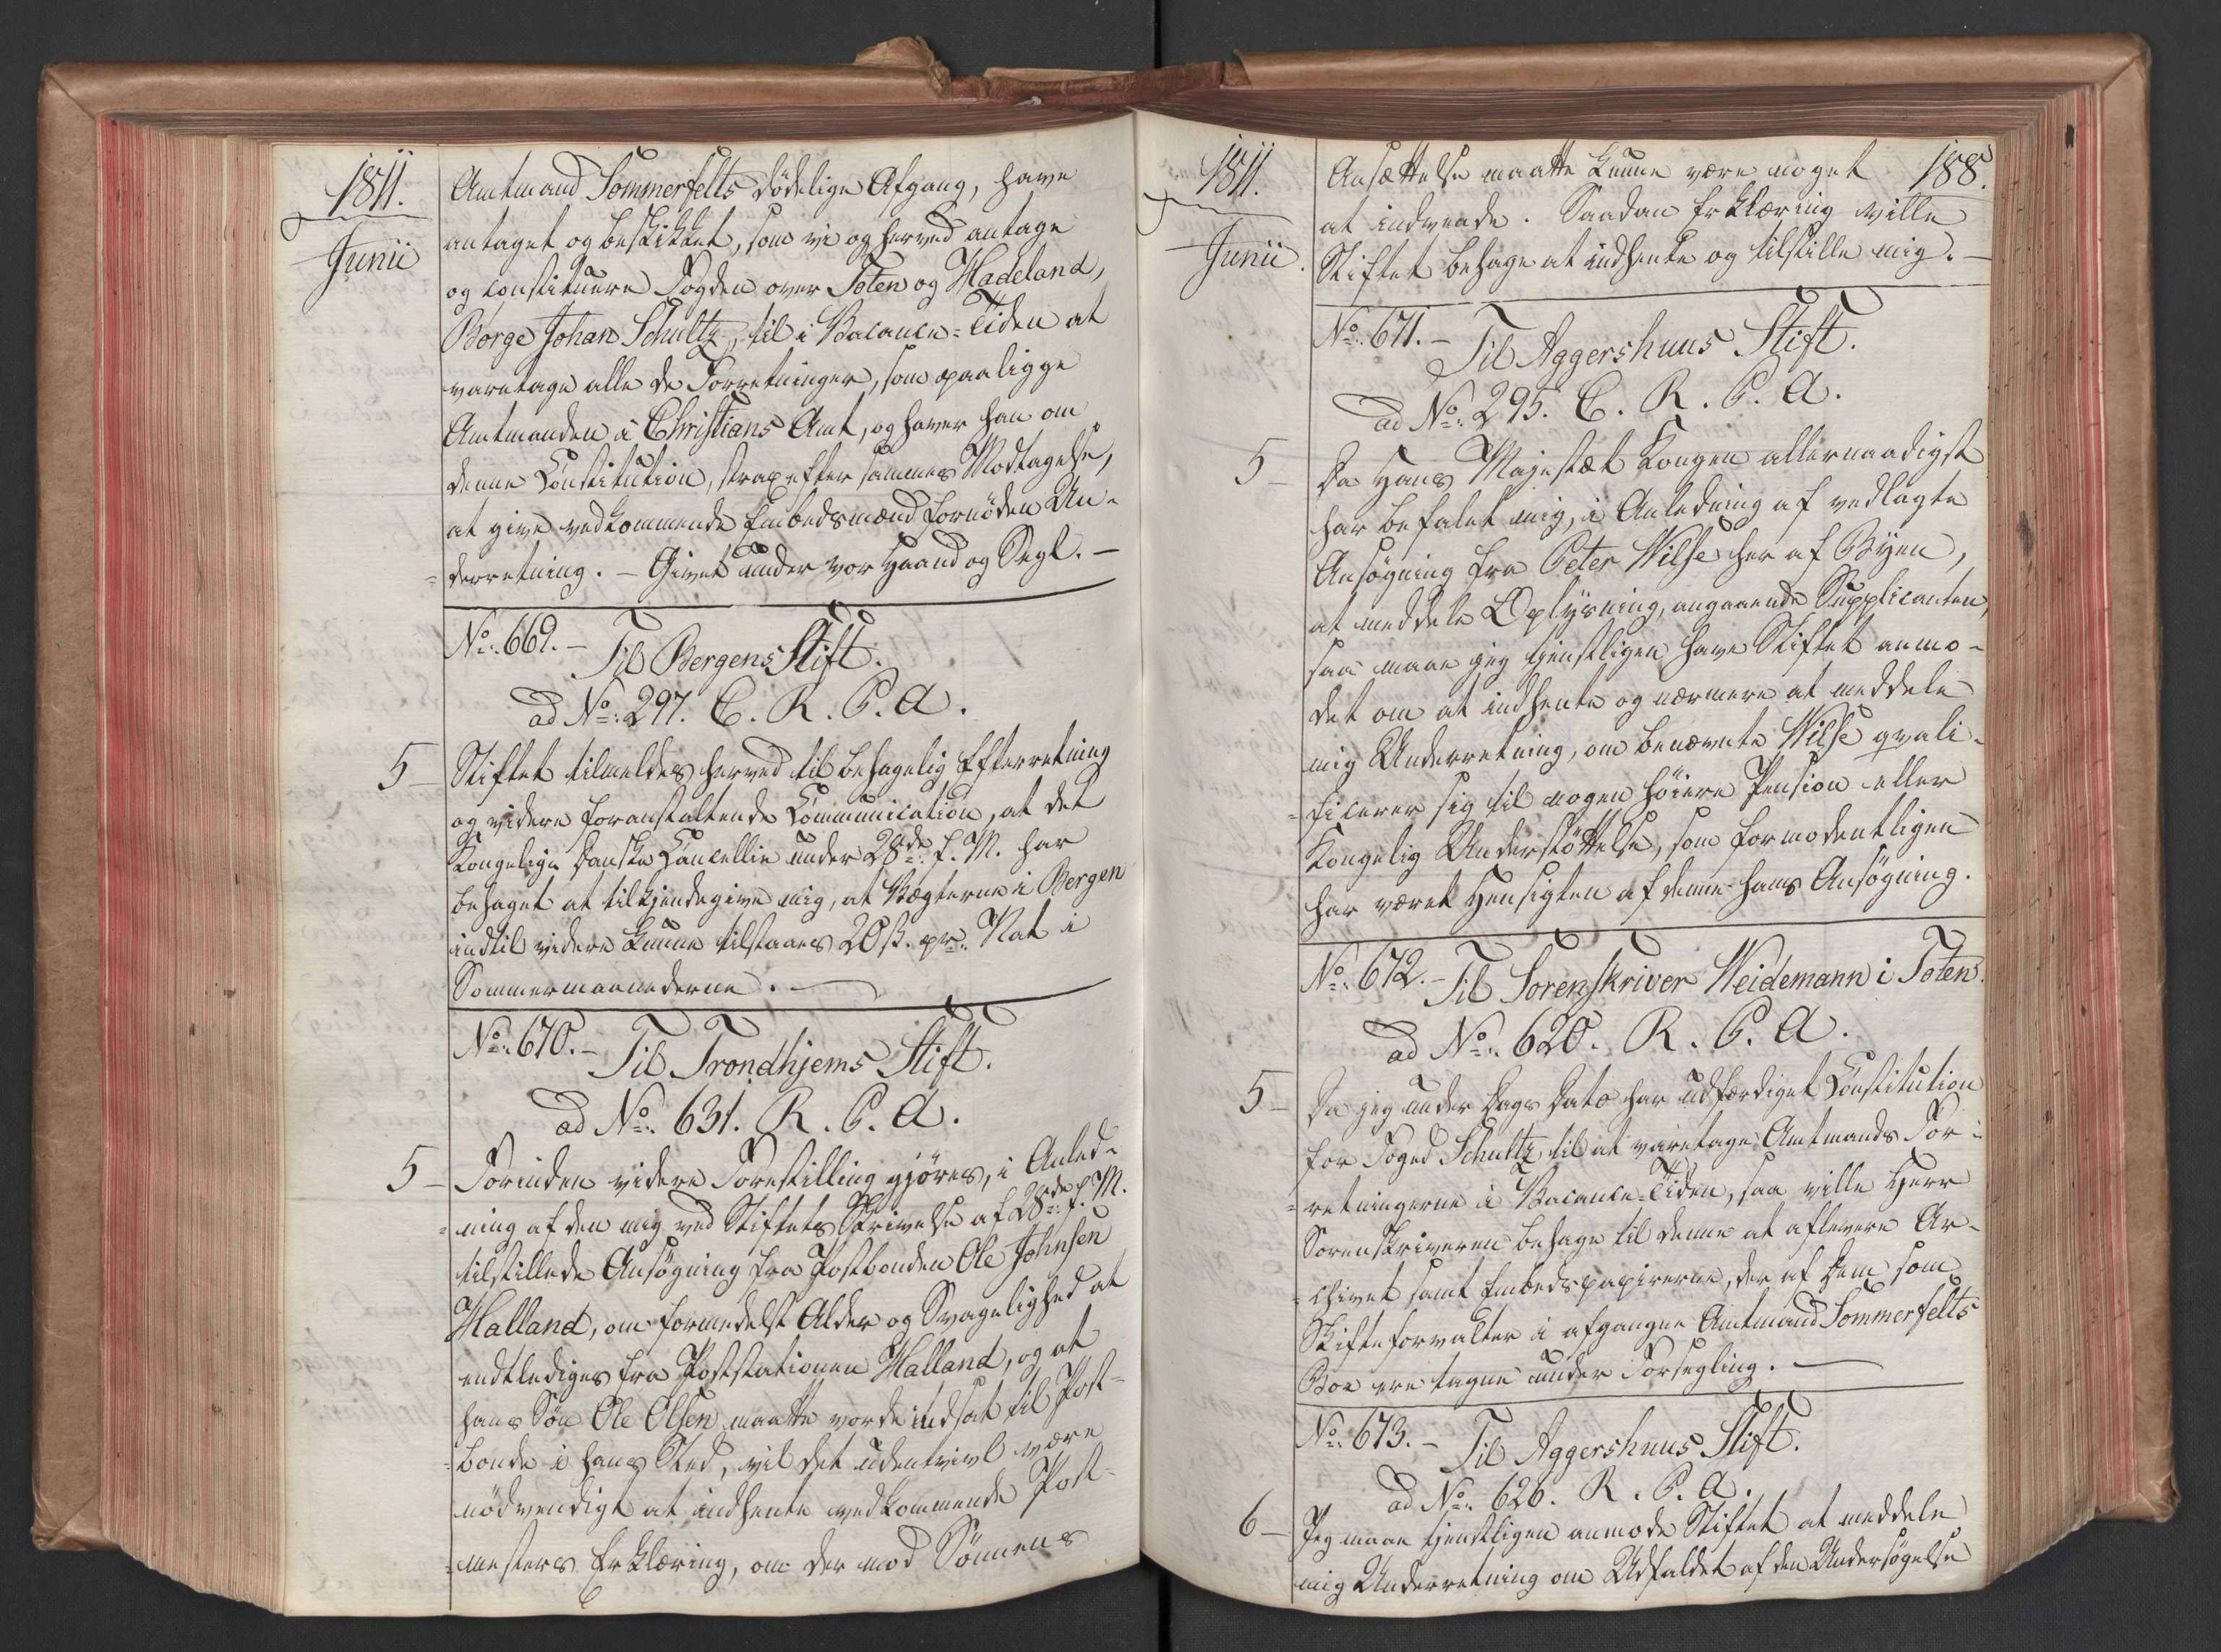 1811.
Junii
Amtmand Sommerfelts dödelige Afgang, have
antaget og beskikket, som vi og herved antage
og constituere Fogden over Toten og Hadeland,
Börge Johan Schultz, til i Vacance-Tiden at
varetage alle de Forretninger, som paaligge
Amtmanden i Christians Amt, og haver han om
denne Constitution, strax efter sammes Modtagelse,
at give vedkommende Embedsmænd fornöden Un-
=derretning. - Givet under vor Haand og Segl. -
No: 669. - Til Bergens Stift.
ad No: 297. C. R. P. A.
5 - Stiftet tilmeldes herved til behagelig Efterretning
og videre foranstaltende Communication, at det
Kongelige Danske Cancellie under 28de f. M. har
behaget at tilkjendegive mig, at Vægterne i Bergen
indtil videre kunne tilstaaes 20 ß. pr. Nat i
Sommermaanederne. -
No: 670. - Til Trondhjems Stift.
ad No: 631. R. P. A.
5 - Forinden videre Forestilling gjöres, i Anled-
=ning af den mig ved Stiftets Skrivelse af 28de f. M.
tilstillede Ansögning fra Postbonden Ole Johnsen
Halland, om formedelst Alder og Svagelighed at
entlediges fra Poststationen Halland, og at
hans Sön Ole Olsen maatte vorde indsat til Post-
=bonde i hans Sted, vil det udentvivl være
nödvendigt at indhente vedkommende Post-
=mesters Erklæring, om der mod Sönnens
1811.
Junii.
188.
Ansættelse maatte kunne være noget
at indvende. Saadan Erklæring ville
Stiftet behage at indhente og tilstille mig. -
No: 671. - Til Aggershuus Stift.
ad No: 295. C. R. P. A.
5 - Da Hans Majestæt Kongen allernaadigst
har befalet mig, i Anledning af vedlagte
Ansögning fra Peter Wilse her af Byen,
at meddele Oplysning, angaaende Supplicanten,
saa maae jeg tjenstligen have Stiftet anmo-
det om at indhente og nærmere at meddele
mig Underretning, om benævnte Wilse qvali-
=ficerer sig til nogen höiere Pension eller
Kongelig Understöttelse, som formodentligen
har været Hensigten af denne hans Ansögning.
No: 672. - Til Sorenskriver Weidemann i Toten.
ad No: 620. R. P. A.
5 - Da jeg under Dags Dato har udfærdiget Constitution
for Foged Schultz til at varetage Amtmands For-
=retningerne i Vacance-Tiden, saa ville Herr
Sorenskriveren behage til denne at aflevere Ar-
=chivet samt Embedspapirerne, der af Dem som
Skifteforvalter i afgangne Amtmand Sommerfelts
Boe ere tagne under Forsegling. -
No: 673. - Til Aggershuus Stift.
ad No: 626. R. P. A.
6 - Jeg maae tjenstligen anmode Stiftet at meddele
mig Underretning om Udfaldet af den Undersögelse